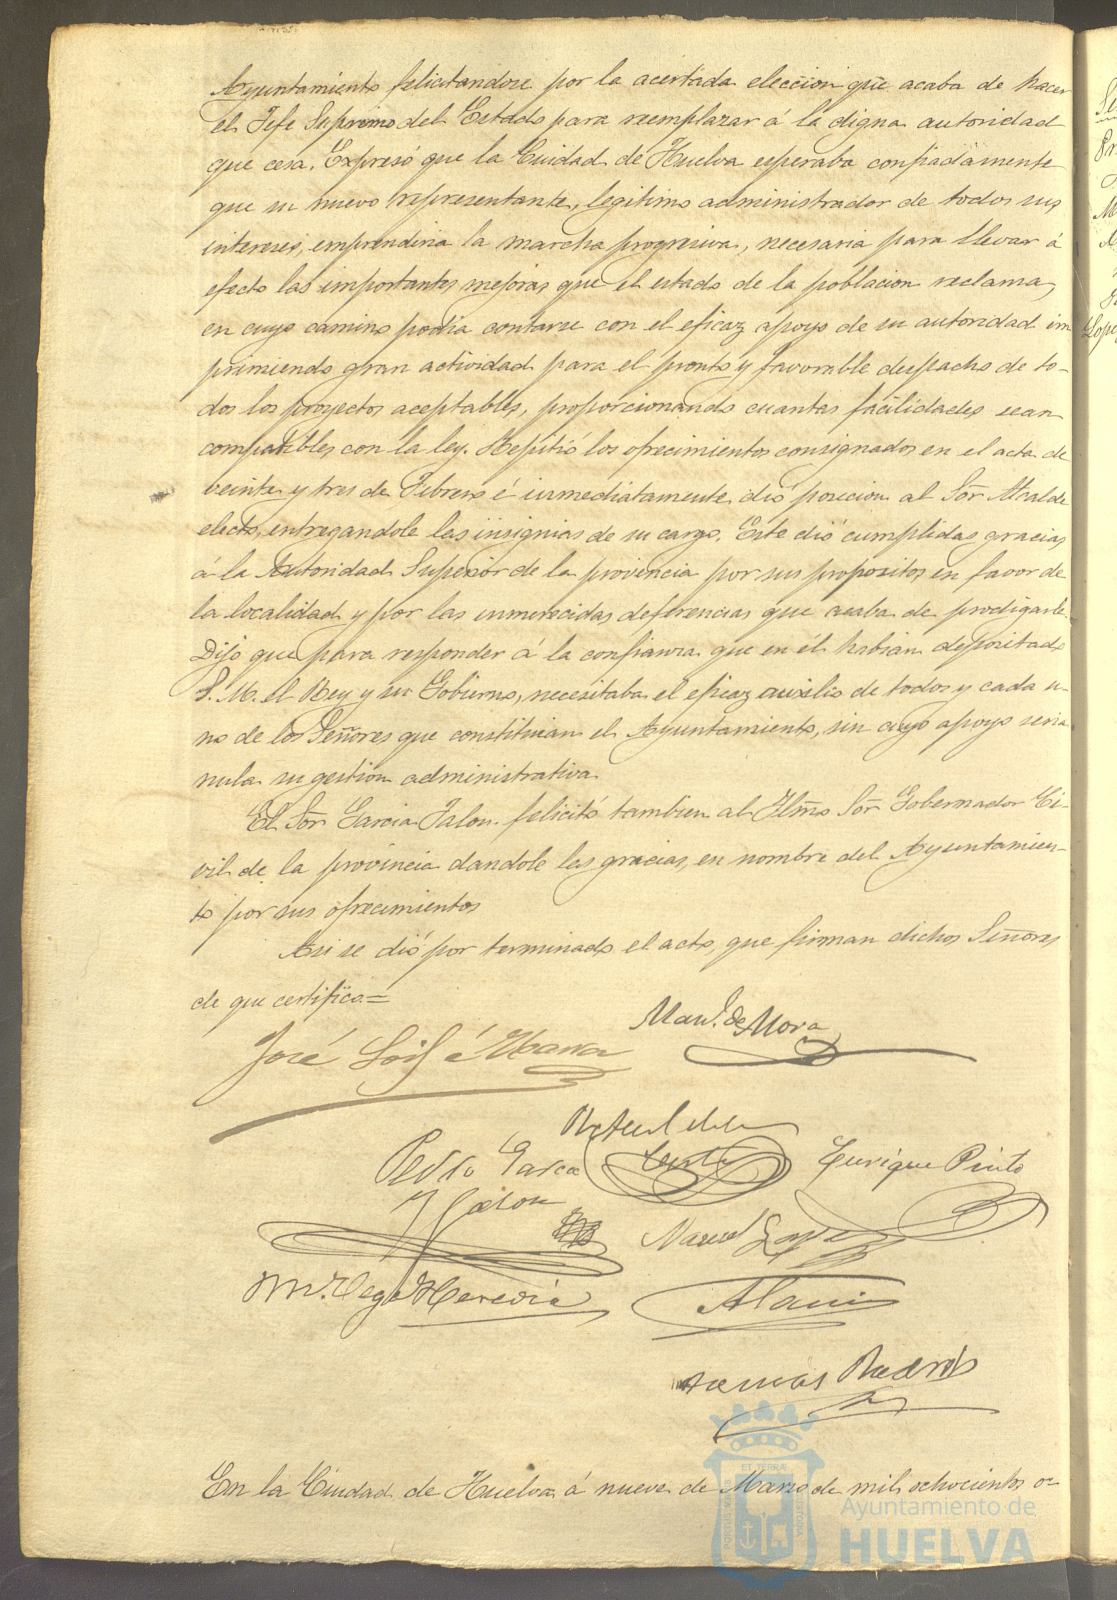 Ayuntamiento felicitandose por la acertada eleccion que acaba de hacer
el Jefe Supremo del Estado para reemplazar á la digna autoridad
que cesa. Expresó que la Ciudad de Huelva esperaba confiadamente
que su nuevo representante, legitimo administrador de todos sus
intereses, emprendiria la marcha progresiva, necesaria para llevar á
efecto las importantes mejoras que el estado de la poblacion reclama,
en cuyo camino podia contarse con el eficaz apoyo de su autoridad im
primiendo gran actividad para el pronto y favorable despacho de to-
dos los proyectos aceptables, proporcionando cuantas facilidades sean
compatibles con la ley. Repitió los ofrecimientos consignados en el acta de
veinte y tres de Febrero é inmediatamente dió posecion al Sor Alcalde
electo, entregandole las insignias de su cargo. Este dió cumplidas gracias
á la Autoridad Superior de la provincia por sus propositos en favor de
la localidad y por las inmerecidas deferencias que acaba de prodigarle.
Dijo que para responder á la confianza que en él habian depositado
S. M. el Rey y su Gobierno, necesitaba el eficaz auxilio de todos y cada u-
no de los Señores que constituian el Ayuntamiento, sin cuyo apoyo seria
nula su gestion administrativa.
El Sor Garcia Jalon felicitó tambien al Ilmo Sor Gobernador Ci-
vil de la provincia dandole las gracias, en nombre del Ayuntamien-
to por sus ofrecimientos
Asi se dió por terminado el acto, que firman dichos Señores
de que certifico=
Manl. de Mora
José
Rafael de la
Pedro Garcia
y Jalon
Enrique Pinto
Manuel Lopez
M. Vega Heredia
En la Ciudad de Huelva á nueve de Marzo de mil ochocientos o-
Ayuntamiento de
HUELVA